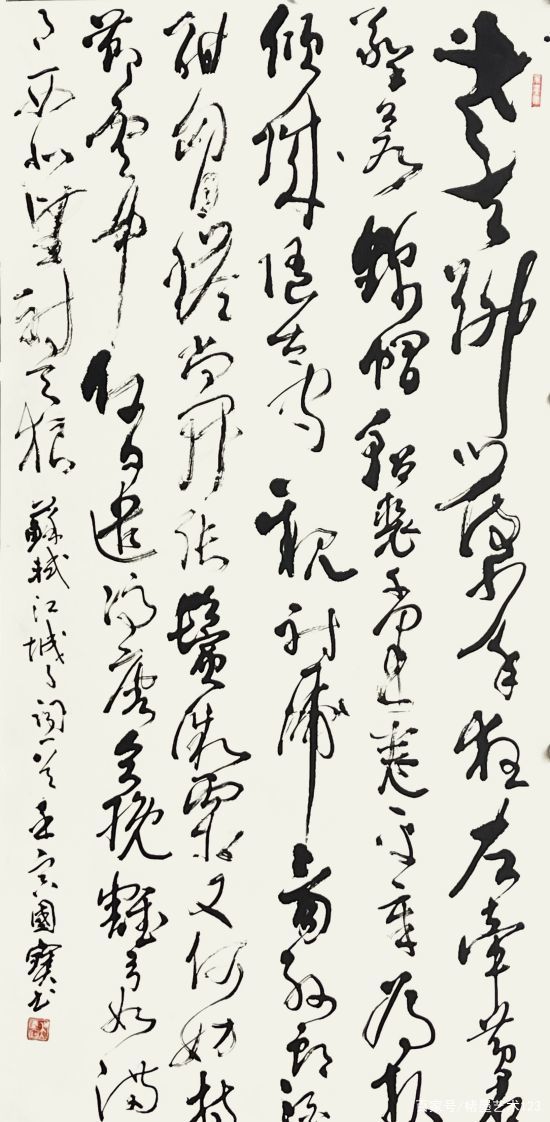 老夫聊發少年狂左牽黃右
擎蒼錦帽貂裘千騎卷平岡為報
傾城隨太守親射虎看孫郎酒
酣胸膽尚開張鬢微霜又何妨持
節雲中何日遣馮唐會挽雕弓如滿
月西北望射天狼 蘇軾江城子詞一首 壬寅國寶書
百家号/墨艺术123